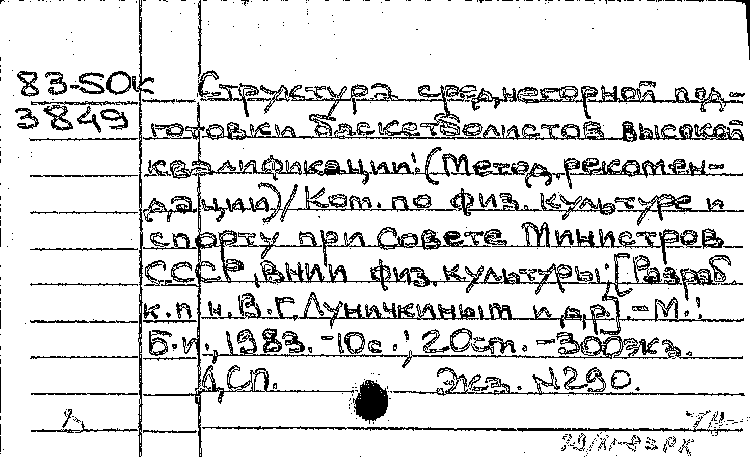 83-5ОК Структура среднегорной под-
3849 готовки баскетболистов высокой
квалификации: (Метод. рекомен-
дации) / Ком. по физ. культуре и
спорту при Совете Министров
СССР, ВНИИ физ. культуры; [Разраб.
к.п.н. В.Г. Луничкиным и др.]. - М.:
Б.и., 1983. - 10 с.; 20 см. - 300 экз.
ДСП. Экз. N290.